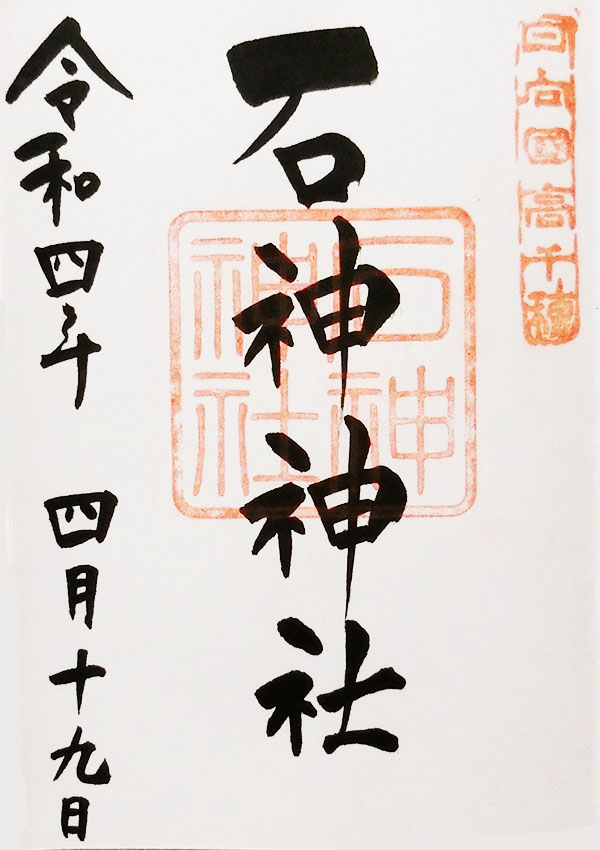 日向国高千穂
石神神社
石神
神社
令和四年 四月十九日